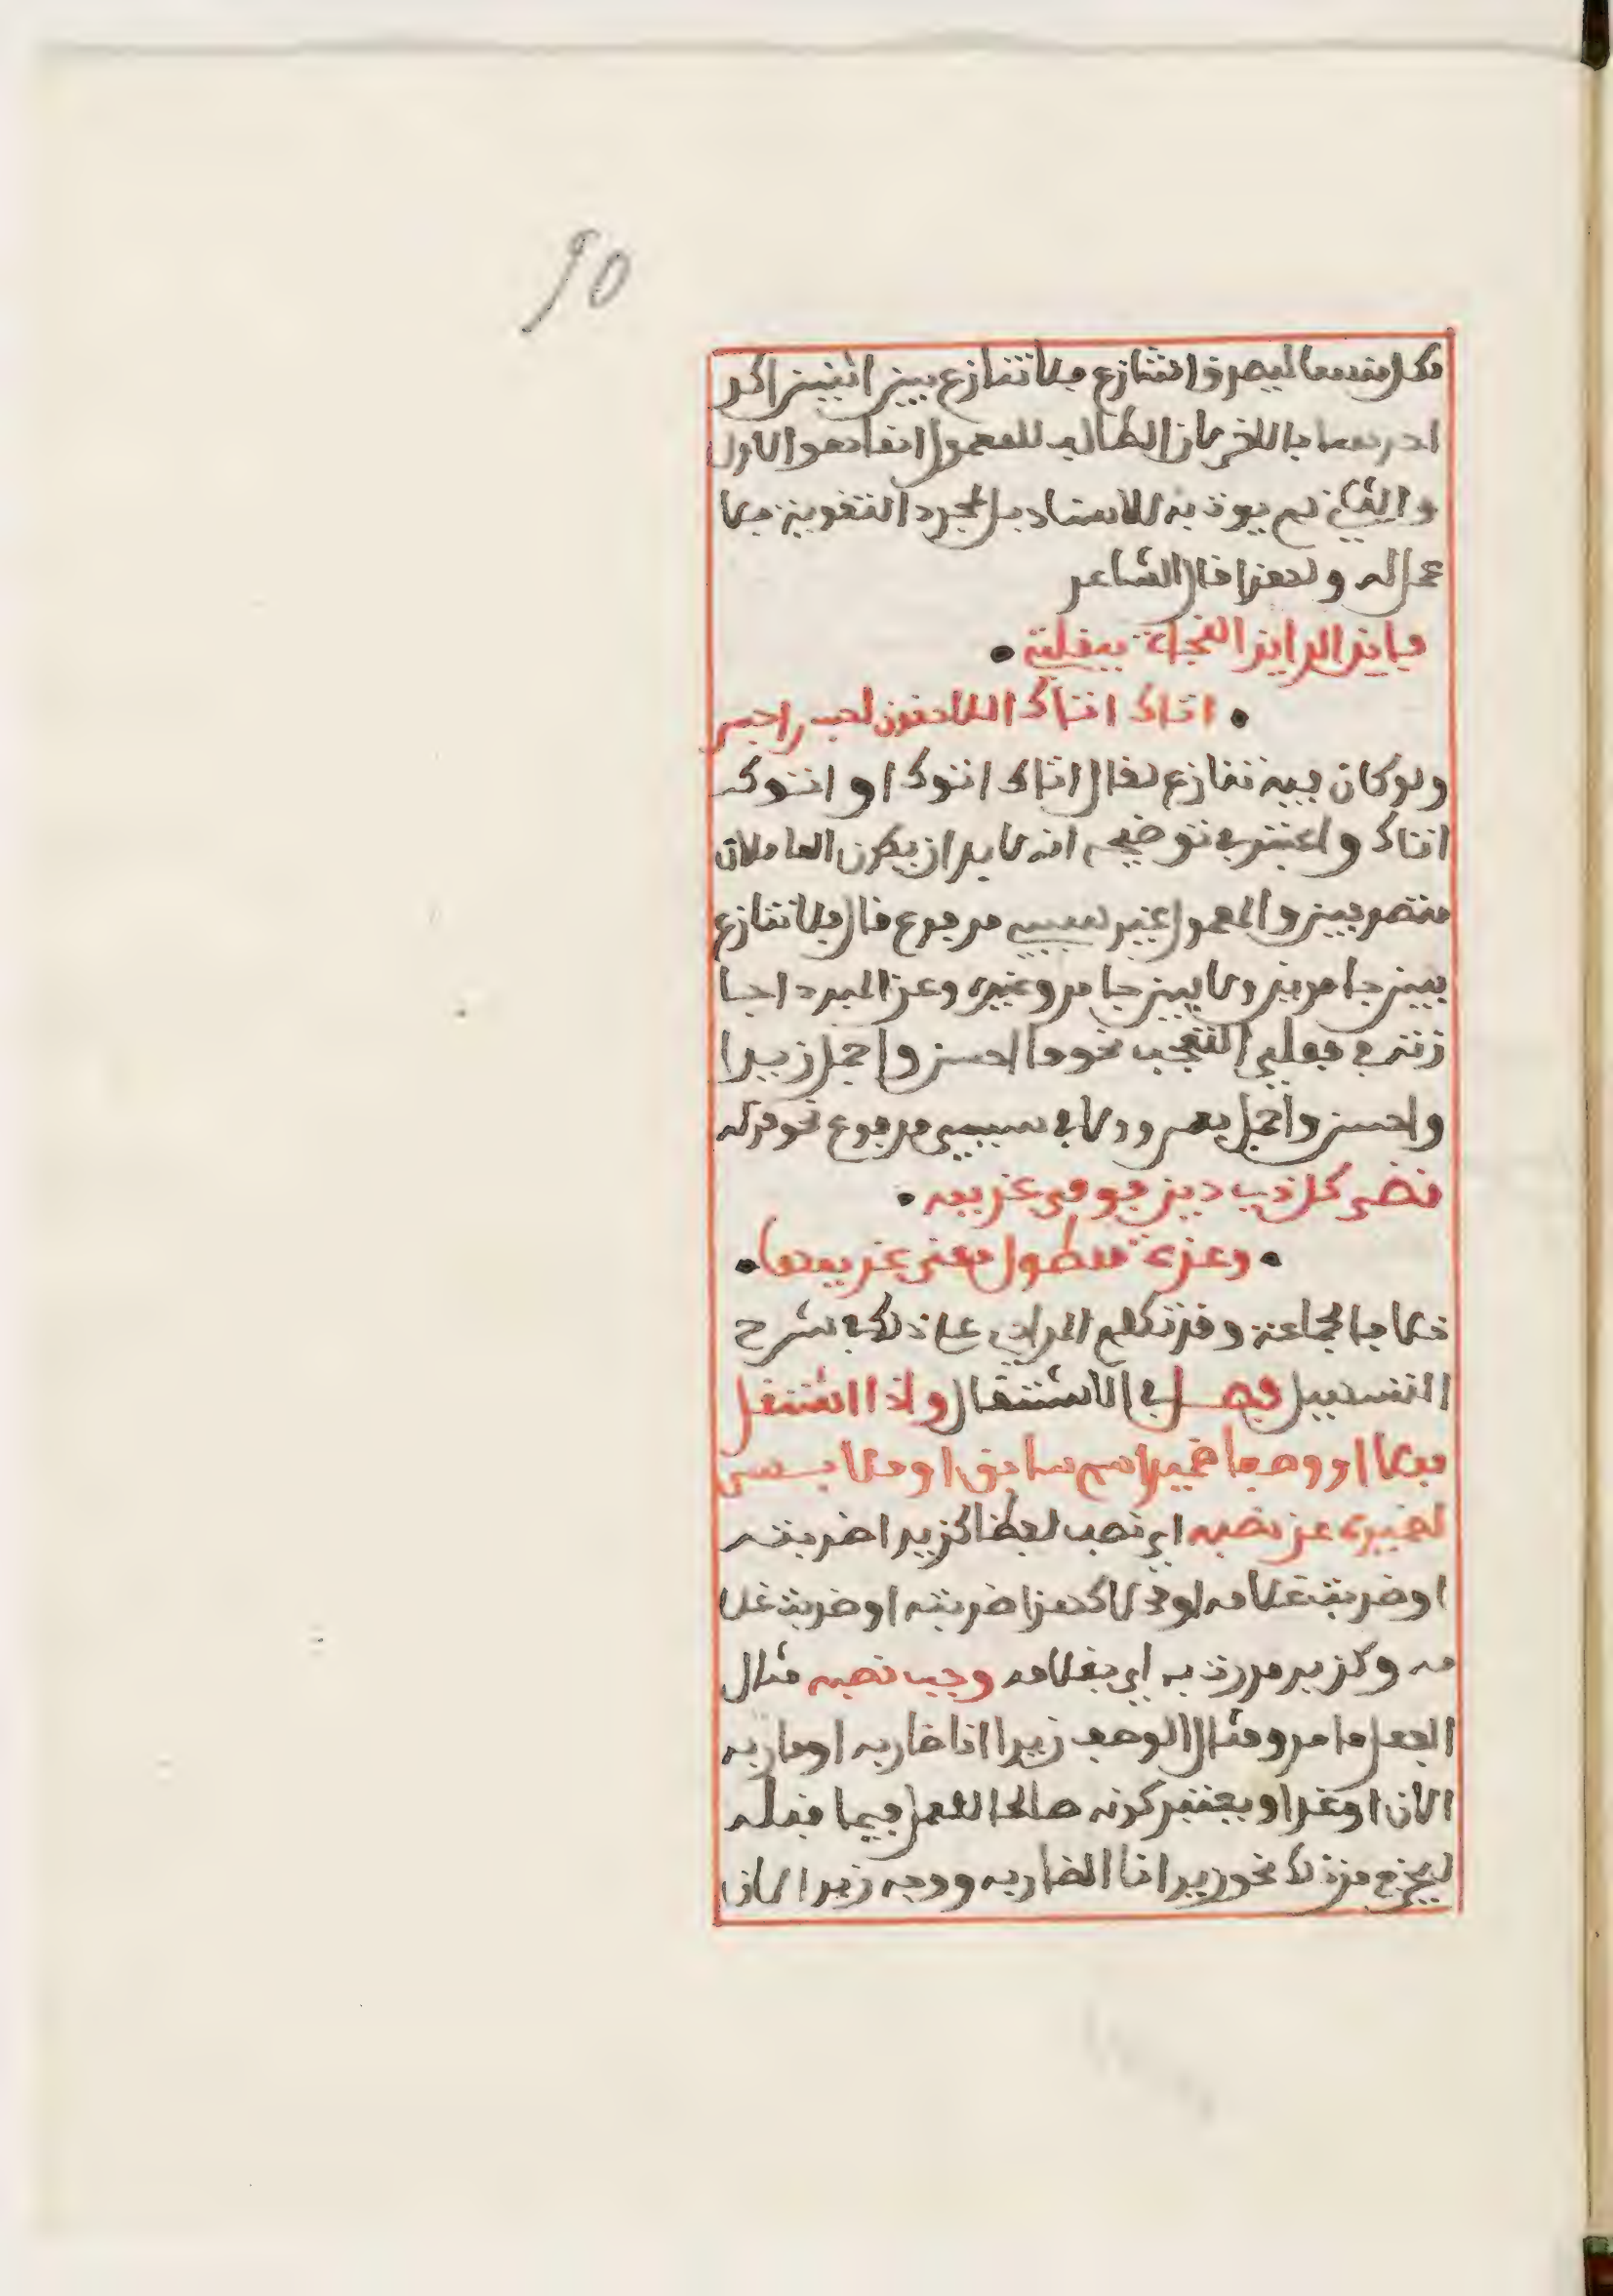 90
لكل منهما ليصدق التنازع فلا تنازع بين اثنين اكد
احدهما بالاخر لان الطالب للمعمول انما هو الاول
والثاني لم يوت به للاسناد بل لمجرد التقوية فلا
عمل له ولهذا قال الشاعر
فاين الى اين النجاة ببغلتي
اتاك اتاك اللاحقون احبس احبس
ولو كان فيه تنازع لقال اتاك اتوك او اتوك
اتاك واعتبر في توضيحه انه لا بد ان يكون العاملان
متصرفين والمعمول غير سببي مرفوع قال فلا تنازع
بين جامدين ولا بين جامد وغيره وعن المبرد اجا
زته في فعلي التعجب نحو ما احسن واجمل زيدا
واحسن واجمل بعمرو ولا في سببي مرفوع نحو قوله
قضى كل ذي دين فوفى غريمه
وعزة ممطول معنى غريمها
خلافا لجماعة وقد تكلم المرادي على ذلك في شرح
التسهيل فصل في الاشتغال واذا اشتغل
فعلا او وصفا ضمير اسم سابق او ملابس
لضميره عن نصبه اي نصب لفظا كزيدا ضربته
او ضربت غلامه او محلا كهذا ضربته او ضربت غلا
مه وكزيد مررت به اي بغلامه وجب نصبه مثال
الفعل ما مر ومثال الوصف زيدا انا ضاربه او مار به
الان او غدا ويعتبر كونه صالحا للعمل فيما قبله
ليخرج من ذلك نحو زيد انا الضاربه ووجه زيد الاذ